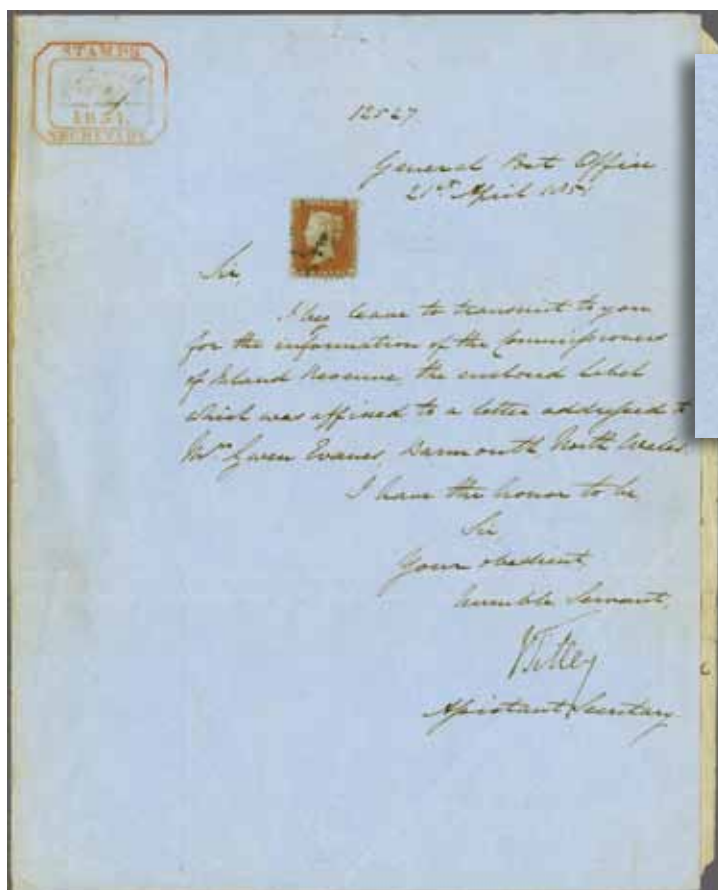 STAMPS
1851.
SECRETARY
12527
General Post Office
21st April 1851
Sir,
I beg leave to transmit to you
for the information of the Commissioners
of Inland Revenue, the enclosed label
which was affixed to a letter addressed to
Mrs Gwen Evans, Barmouth North Wales.
I have the honor to be,
Sir
Your obedient
humble Servant,
JTilley
Assistant Secretary